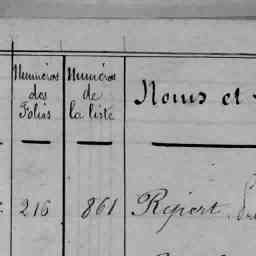 Numéros des Folios
Numéros de la liste
Noms et
216 861 Ripert